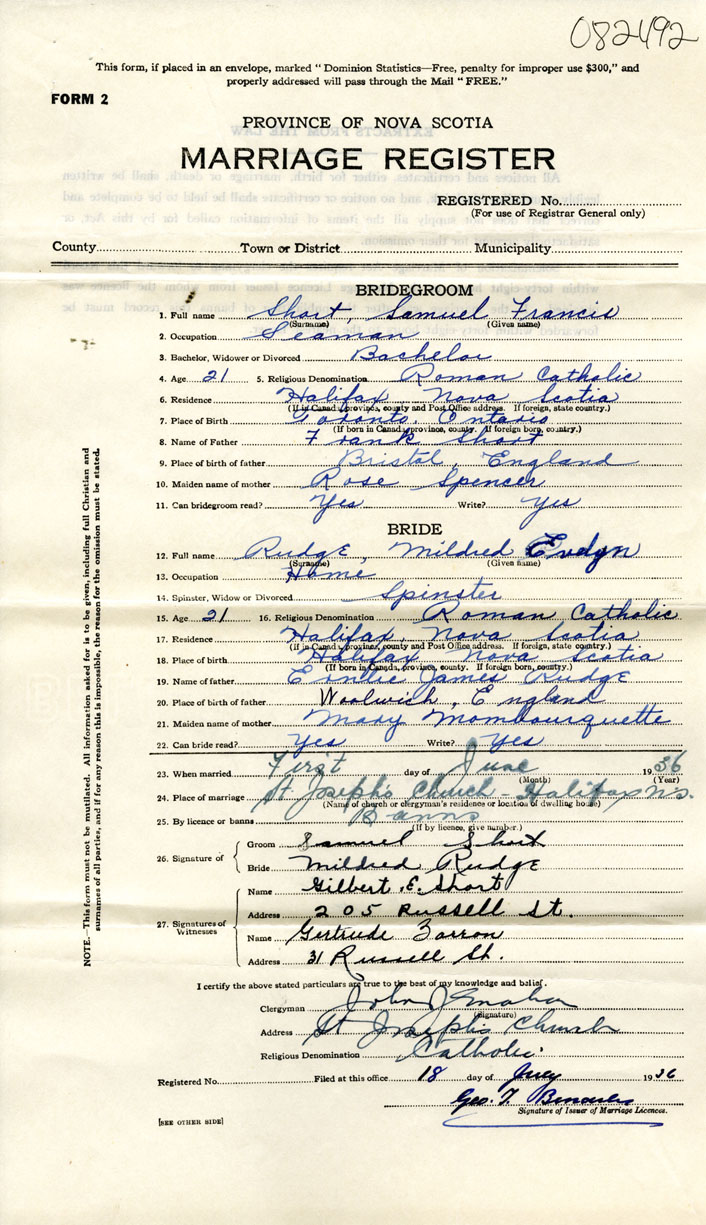 082492
This form, if placed in an envelope, marked "Dominion Statistics—Free, penalty for improper use $300," and
properly addressed will pass through the Mail "FREE."
FORM 2
PROVINCE OF NOVA SCOTIA
MARRIAGE REGISTER
REGISTERED No.
(For use of Registrar General only)
County Town or District Municipality
BRIDEGROOM
1. Full name Short, Samuel Francis
(Surname) (Given name)
2. Occupation Seaman
3. Bachelor, Widower or Divorced Bachelor
4. Age 21 5. Religious Denomination Roman Catholic
6. Residence Halifax Nova Scotia
(If in Canada, province, county and Post Office address. If foreign, state country.)
7. Place of Birth Toronto, Ontario
(If born in Canada, province, county. If foreign born, country.)
8. Name of Father Frank Short
9. Place of birth of father Bristol, England
10. Maiden name of mother Rose Spencer
11. Can bridegroom read? Yes Write? Yes
BRIDE
12. Full name Rudge, Mildred Evelyn
(Surname) (Given name)
13. Occupation Home
14. Spinster, Widow or Divorced Spinster
15. Age 21 16. Religious Denomination Roman Catholic
17. Residence Halifax, Nova Scotia
(If in Canada, province, county and Post Office address. If foreign, state country.)
18. Place of birth Halifax Nova Scotia
(If born in Canada, province, county. If foreign born, country.)
19. Name of father James Rudge
20. Place of birth of father Woolwich, England
21. Maiden name of mother Mary Mombourquette
22. Can bride read? Yes Write? Yes
23. When married First day of June 1936
(Month) (Year)
24. Place of marriage St Joseph's Church Halifax N.S.
(Name of church or clergyman's residence or location of dwelling house)
25. By licence or banns Banns
(If by licence, give number.)
26. Signature of
Groom Samuel Short
Bride Mildred Rudge
27. Signatures of Witnesses
Name Gilbert E. Short
Address 205 Russell St.
Name Gertrude Barron
Address 31 Russell St.
I certify the above stated particulars are true to the best of my knowledge and belief.
Clergyman John J
(Signature)
Address St Joseph's Church
Religious Denomination Catholic
Registered No. Filed at this office 18 day of 1936
Geo. T.
Signature of Issuer of Marriage Licences.
[SEE OTHER SIDE]
NOTE.—This form must not be mutilated. All information asked for is to be given, including full Christian and
surnames of all parties, and if for any reason this is impossible, the reason for the omission must be stated.